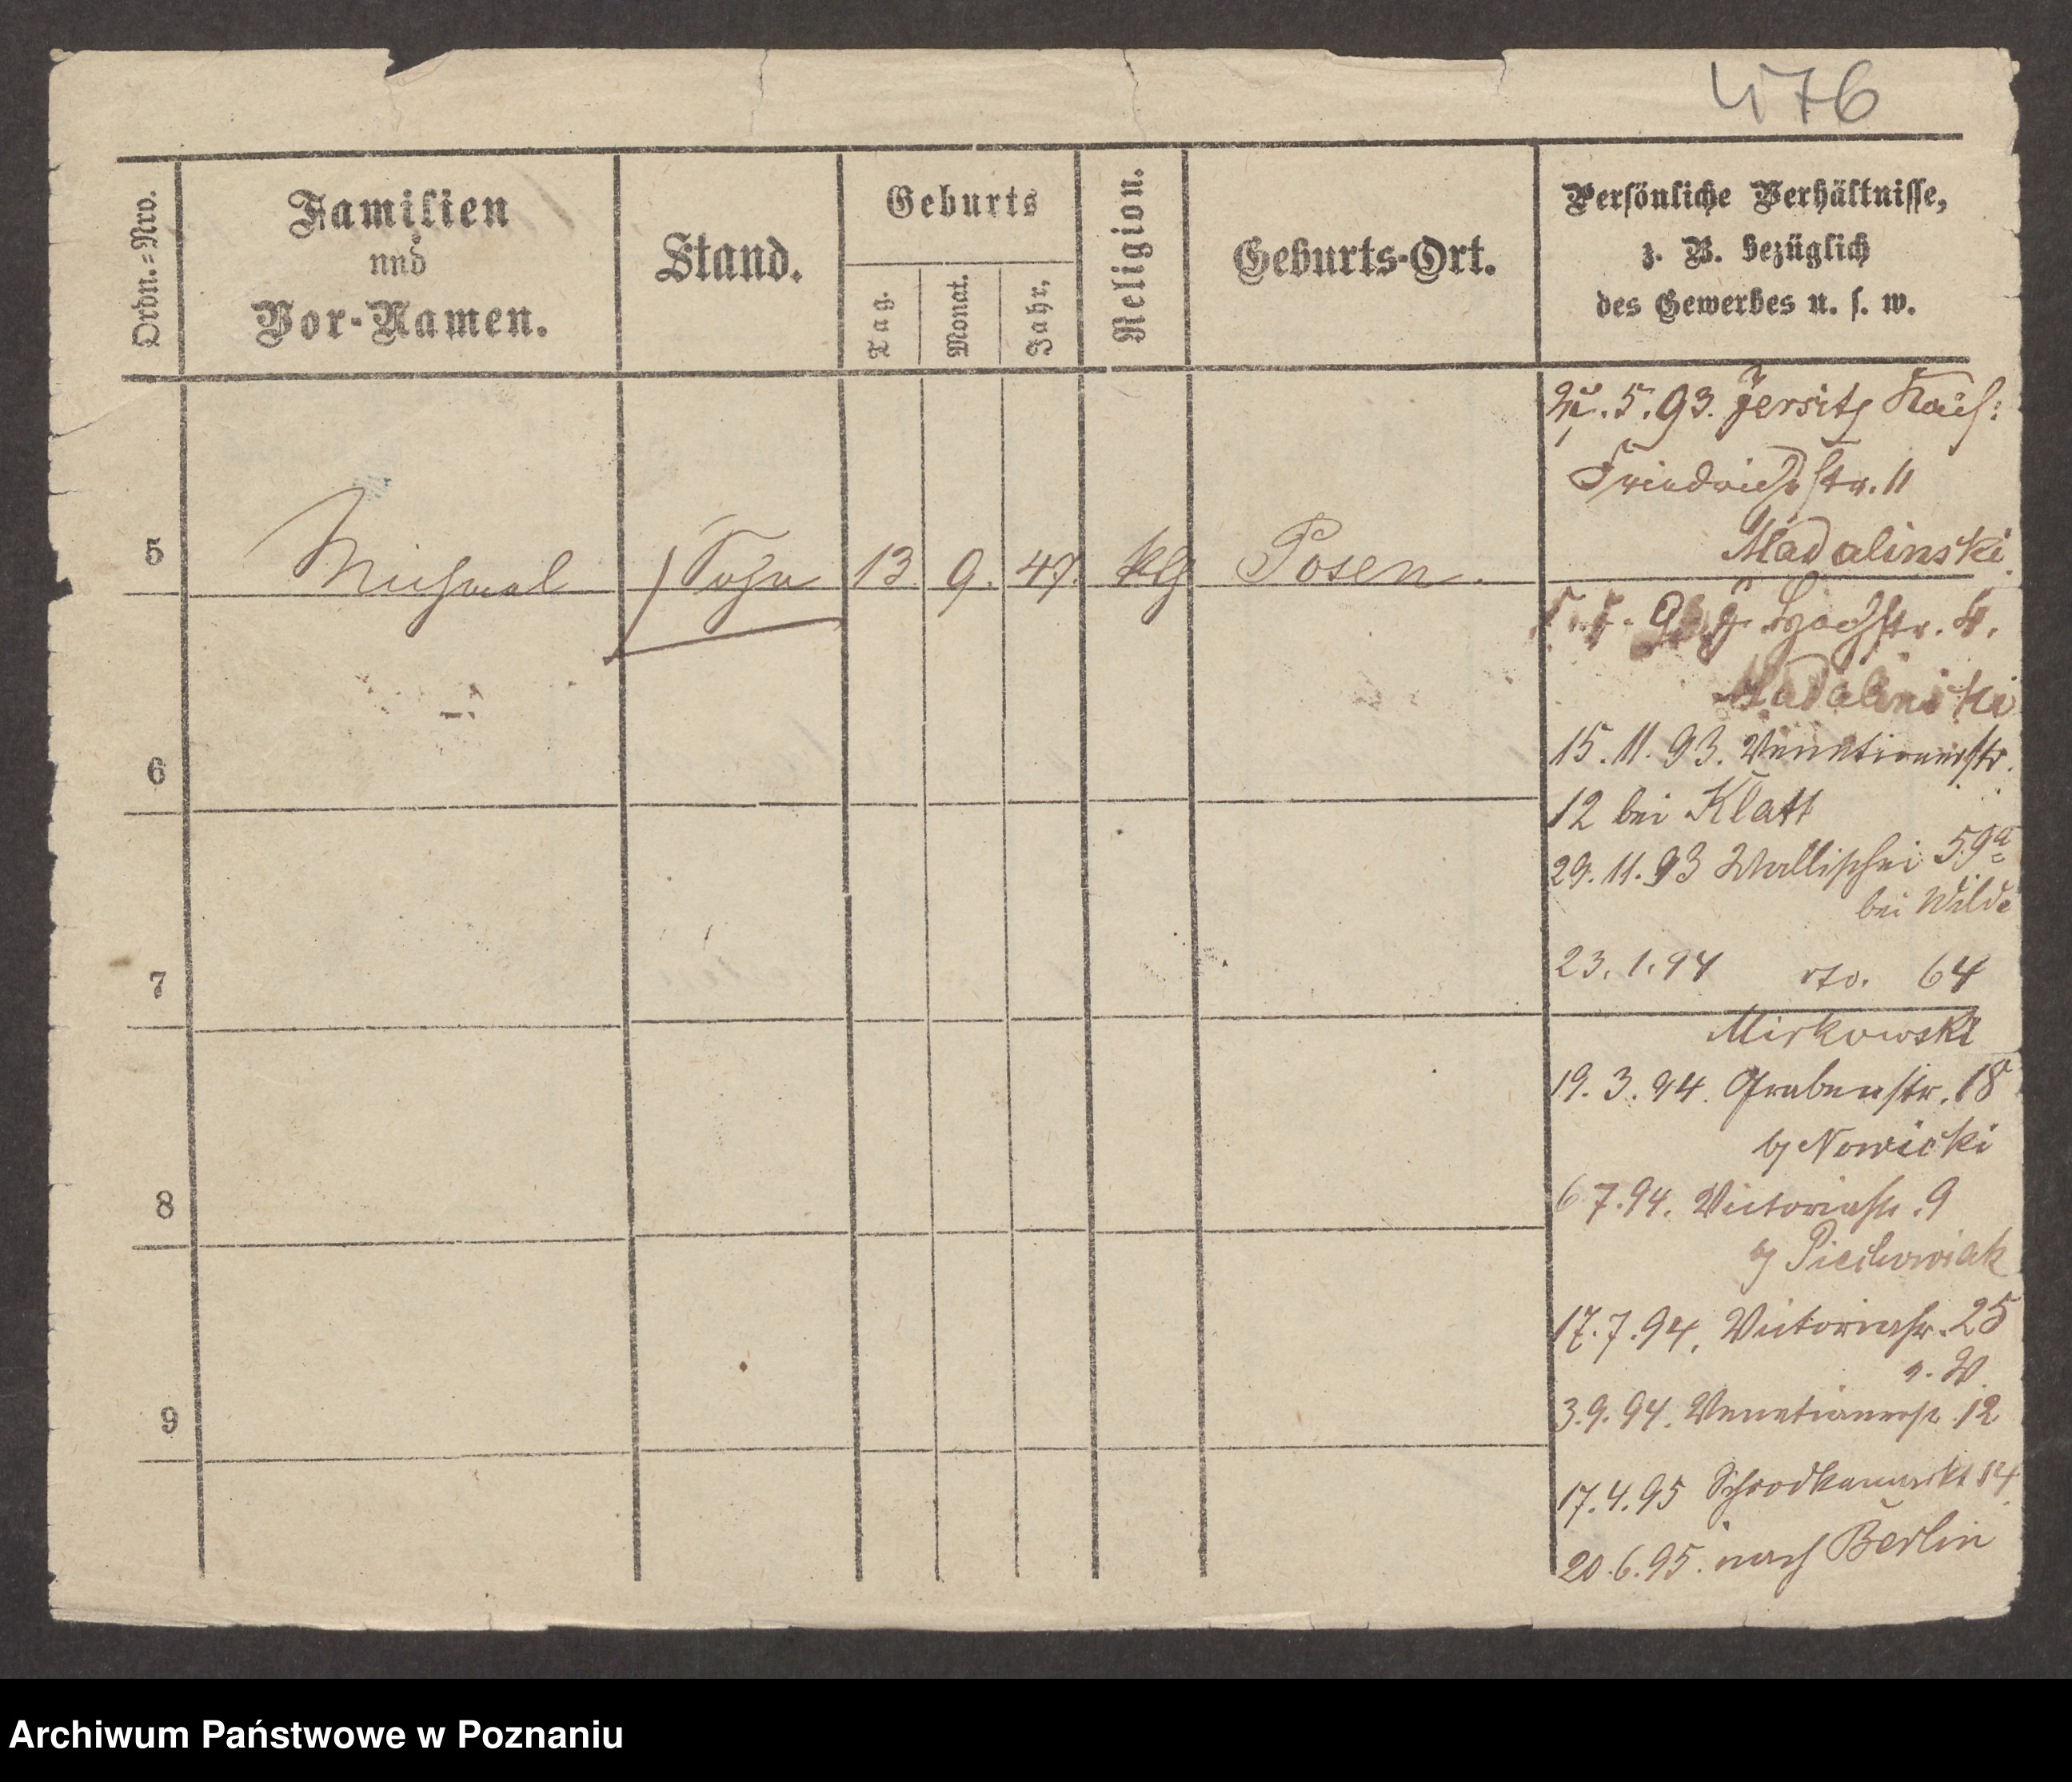 476
Ordn.=Nro.
Familien
und
Vor-Namen.
Stand.
Geburts
Tag.
Monat.
Jahr.
Religion.
Geburts-Ort.
Persönliche Verhältnisse,
z. B. bezüglich
des Gewerbes u. s. w.
5 Michael Sohn 13. 9. 47. klh Posen.
6
7
8
9
5.93. Jersitz
Friedrichstr. 11
Madalinski
Hochstr. 4.
Madalinski
15.11.93. Venetianerstr.
12 bei Klatt
29.11.93 Wallischei 59a
bei Wilde
23.1.94 dto. 64
Mirkowski
19.3.94. Grabenstr. 18
b/ Nowicki
6.7.94. Victoriastr. 9
b/ Piechowiak
17.7.94. Victoriastr. 25
3.9.94. Venetianerstr. 12
17.4.95 Schrodkamarkt 14
20.6.95. nach Berlin
Archiwum Państwowe w Poznaniu